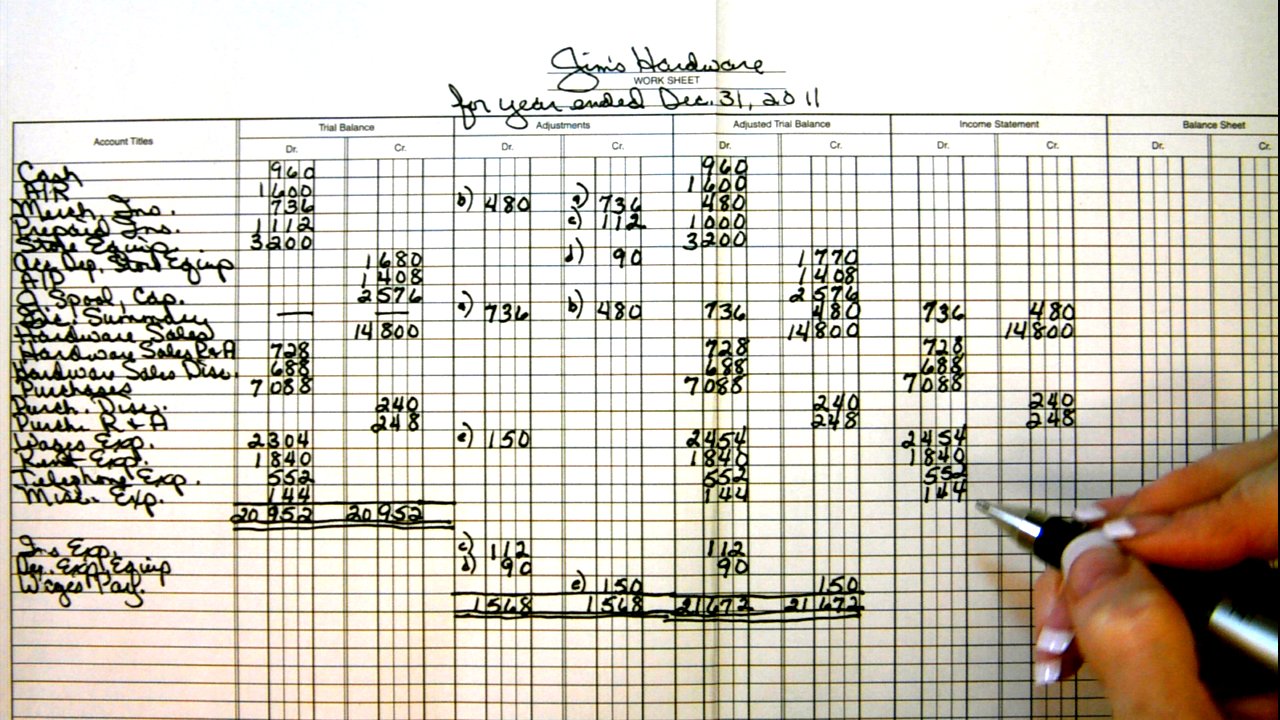 Jim's Hardware
WORK SHEET
for year ended Dec. 31, 2011
Account Titles Trial Balance Adjustments Adjusted Trial Balance Income Statement Balance Sheet
Dr. Cr. Dr. Cr. Dr. Cr. Dr. Cr. Dr. Cr.
Cash 960 960
A/R 1600 1600
Merch. Ins. 736 b) 480 a) 736 480
Prepaid Ins. 1112 c) 112 1000
Store Equip. 3200 3200
Acc. Dep. Store Equip 1680 d) 90 1770
A/P 1408 1408
J. Spool, Cap. 2576 2576
Inc. Summary — — a) 736 b) 480 736 480 736 480
Hardware Sales 14800 14800 14800
Hardware Sales R&A 728 728 728
Hardware Sales Disc. 688 688 688
Purchases 7088 7088 7088
Purch. Disc. 240 240 240
Purch. R & A 248 248 248
Wages Exp. 2304 e) 150 2454 2454
Rent Exp. 1840 1840 1840
Telephone Exp. 552 552 552
Misc. Exp. 144 144 144
20952 20952
Ins Exp. c) 112 112
Dep. Exp. Equip d) 90 90
Wages Pay. e) 150 150
1568 1568 21672 21672